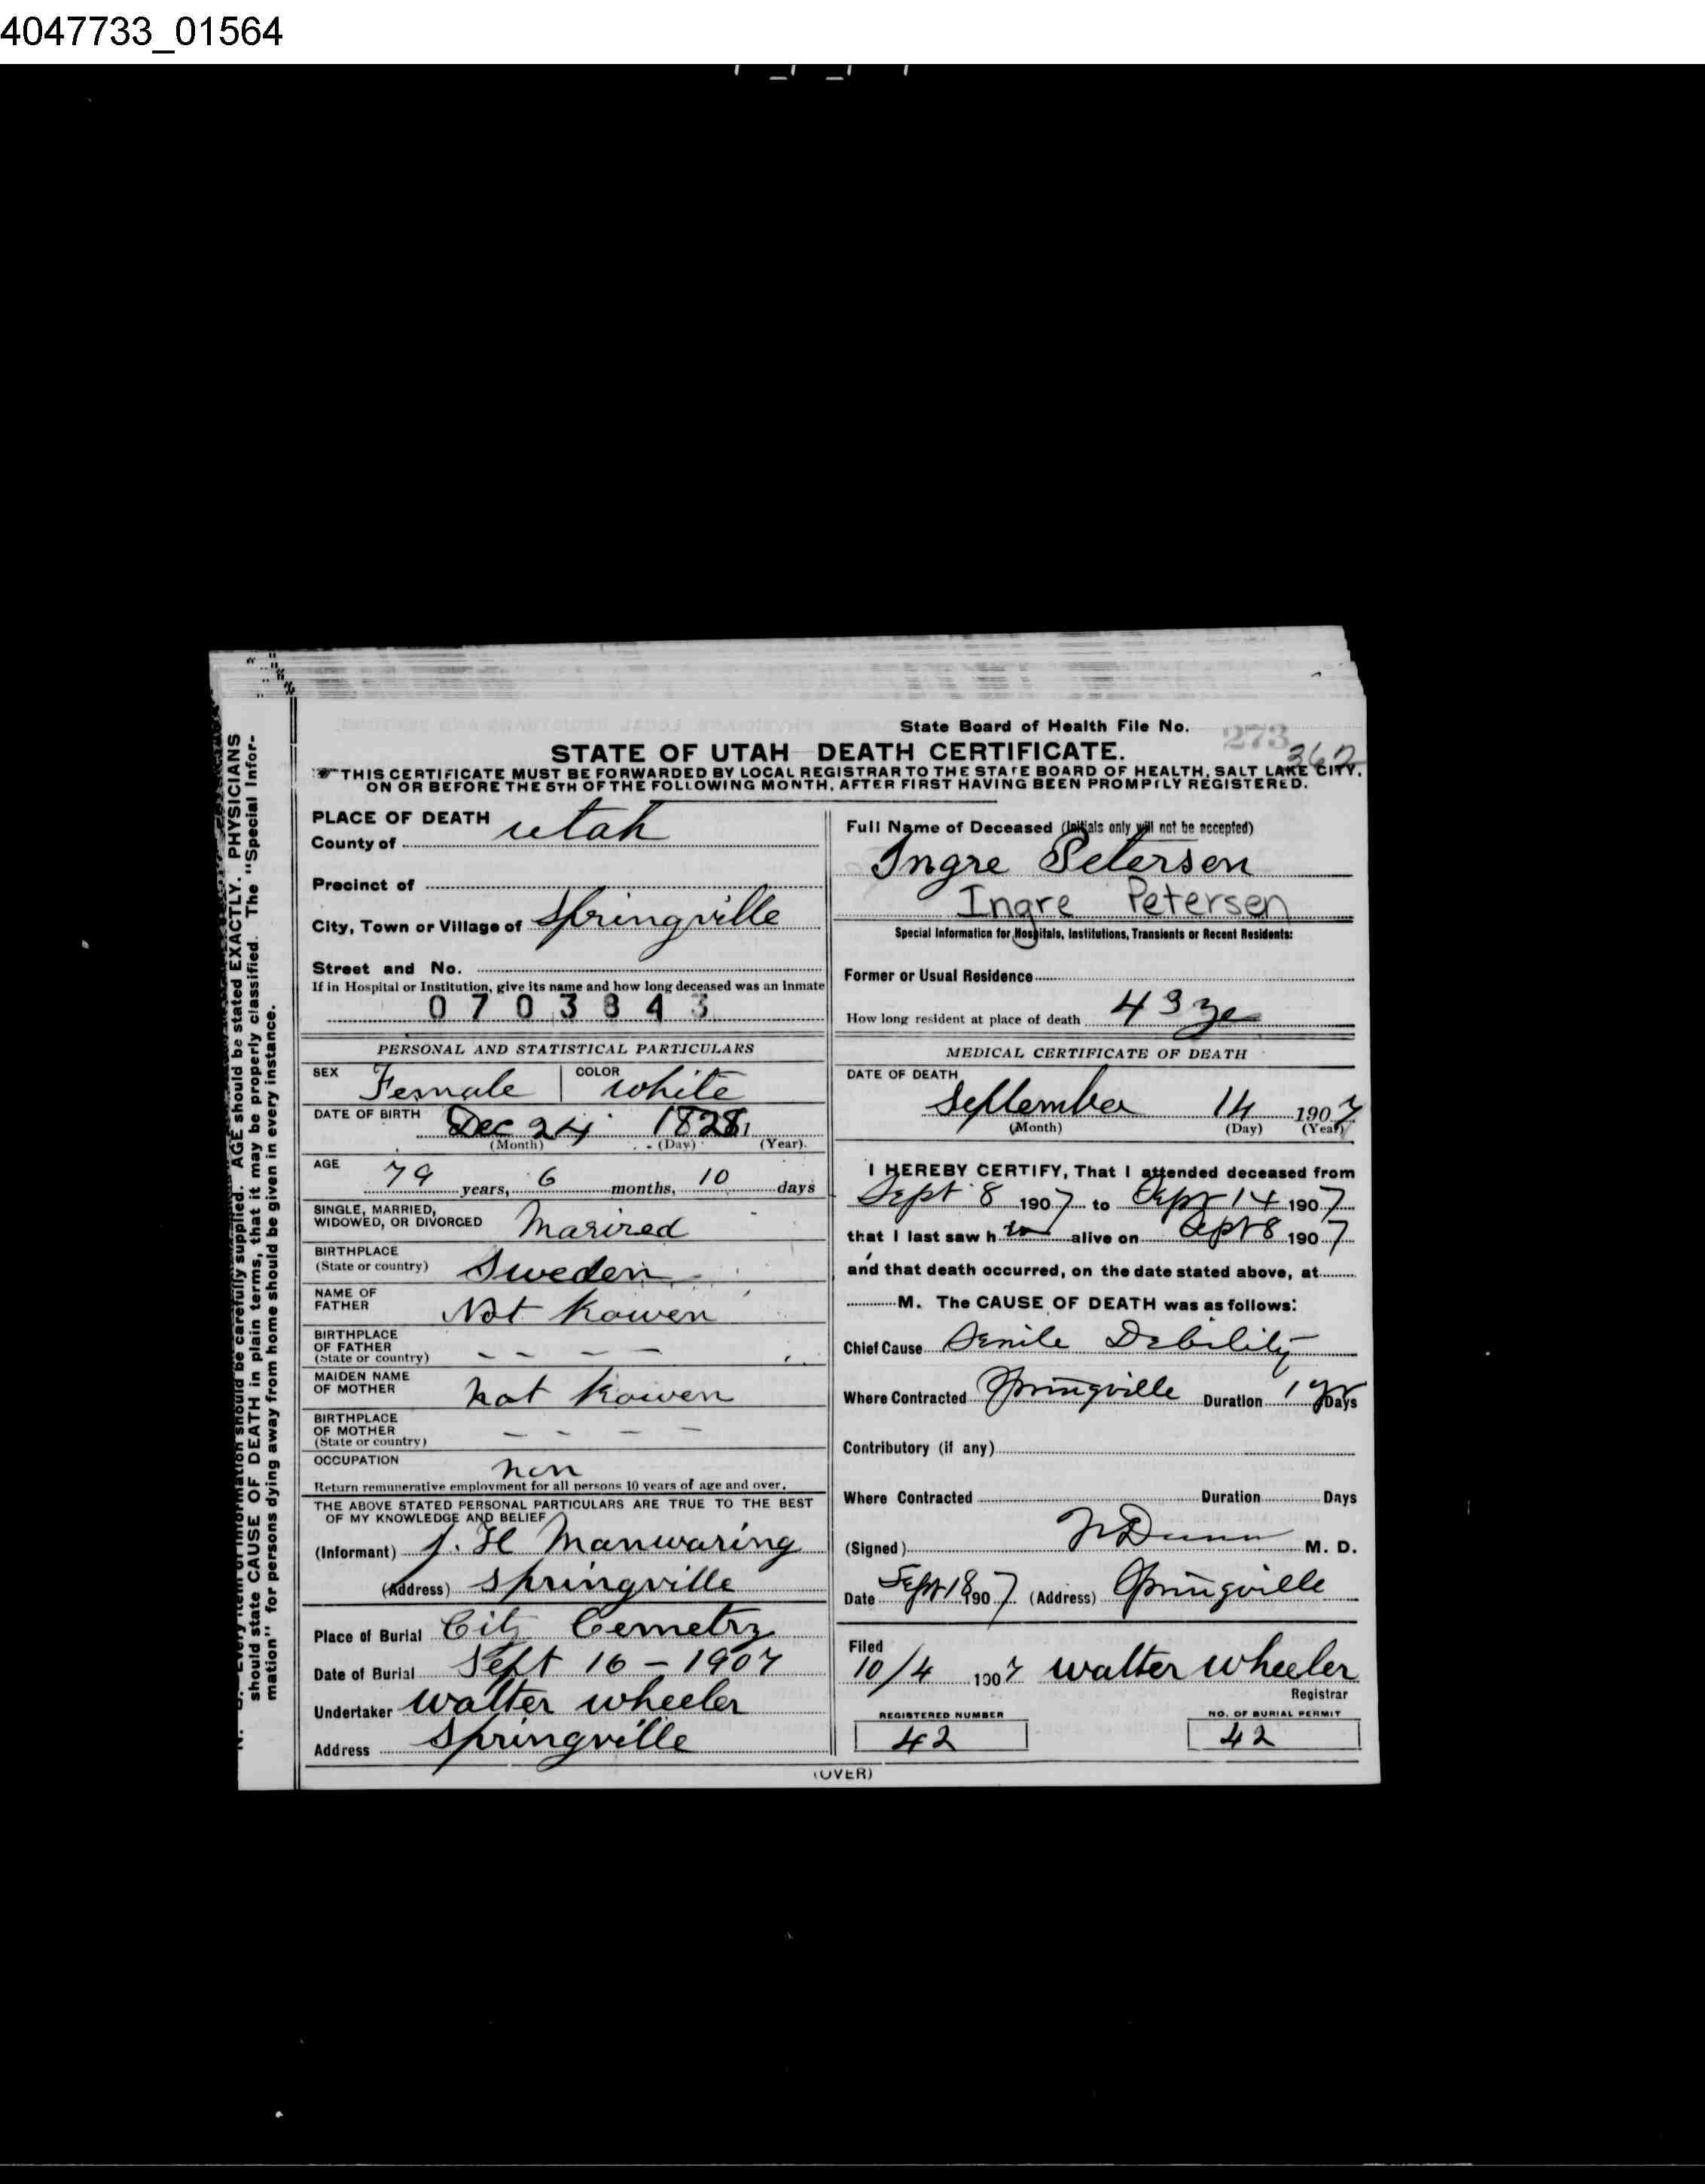 4047733_01564
State Board of Health File No. 273
362
STATE OF UTAH DEATH CERTIFICATE.
THIS CERTIFICATE MUST BE FORWARDED BY LOCAL REGISTRAR TO THE STATE BOARD OF HEALTH, SALT LAKE CITY,
ON OR BEFORE THE 5TH OF THE FOLLOWING MONTH, AFTER FIRST HAVING BEEN PROMPTLY REGISTERED.
PLACE OF DEATH
County of utah
Precinct of
City, Town or Village of Springville
Street and No.
If in Hospital or Institution, give its name and how long deceased was an inmate
0703843
PERSONAL AND STATISTICAL PARTICULARS
SEX Female COLOR white
DATE OF BIRTH Dec 24 1828
(Month) (Day) (Year).
AGE 79 years, 6 months, 10 days
SINGLE, MARRIED,
WIDOWED, OR DIVORCED Marired
BIRTHPLACE
(State or country) Sweden
NAME OF
FATHER Not Kowen
BIRTHPLACE
OF FATHER
(State or country) - - - -
MAIDEN NAME
OF MOTHER not Kowen
BIRTHPLACE
OF MOTHER
(State or country) - - - -
OCCUPATION non
Return remunerative employment for all persons 10 years of age and over.
THE ABOVE STATED PERSONAL PARTICULARS ARE TRUE TO THE BEST
OF MY KNOWLEDGE AND BELIEF
(Informant) J. H Manwaring
(Address) Springville
Place of Burial City Cemetry
Date of Burial Sept 16 - 1907
Undertaker Walter Wheeler
Address Springville
Full Name of Deceased (Initials only will not be accepted)
Ingre Petersen
Ingre Petersen
Special Information for Hospitals, Institutions, Transients or Recent Residents:
Former or Usual Residence
How long resident at place of death 43 ye
MEDICAL CERTIFICATE OF DEATH
DATE OF DEATH
September 14 1907
(Month) (Day) (Year)
I HEREBY CERTIFY, That I attended deceased from
Sept 8 1907 to Sept 14 1907
that I last saw h alive on Sept 8 1907
and that death occurred, on the date stated above, at
M. The CAUSE OF DEATH was as follows:
Chief Cause Senile Debility
Where Contracted Springville Duration 1 yr Days
Contributory (if any)
Where Contracted Duration Days
(Signed) Dunn M. D.
Date Sept 18 1907 (Address) Springville
Filed
10/4 1907 Walter Wheeler
Registrar
REGISTERED NUMBER NO. OF BURIAL PERMIT
42 42
(OVER)
should state CAUSE OF DEATH in plain terms, that it may be properly classified. The "Special Infor-
mation" for persons dying away from home should be given in every instance.
N. B.—Every item of information should be carefully supplied. AGE should be stated EXACTLY. PHYSICIANS